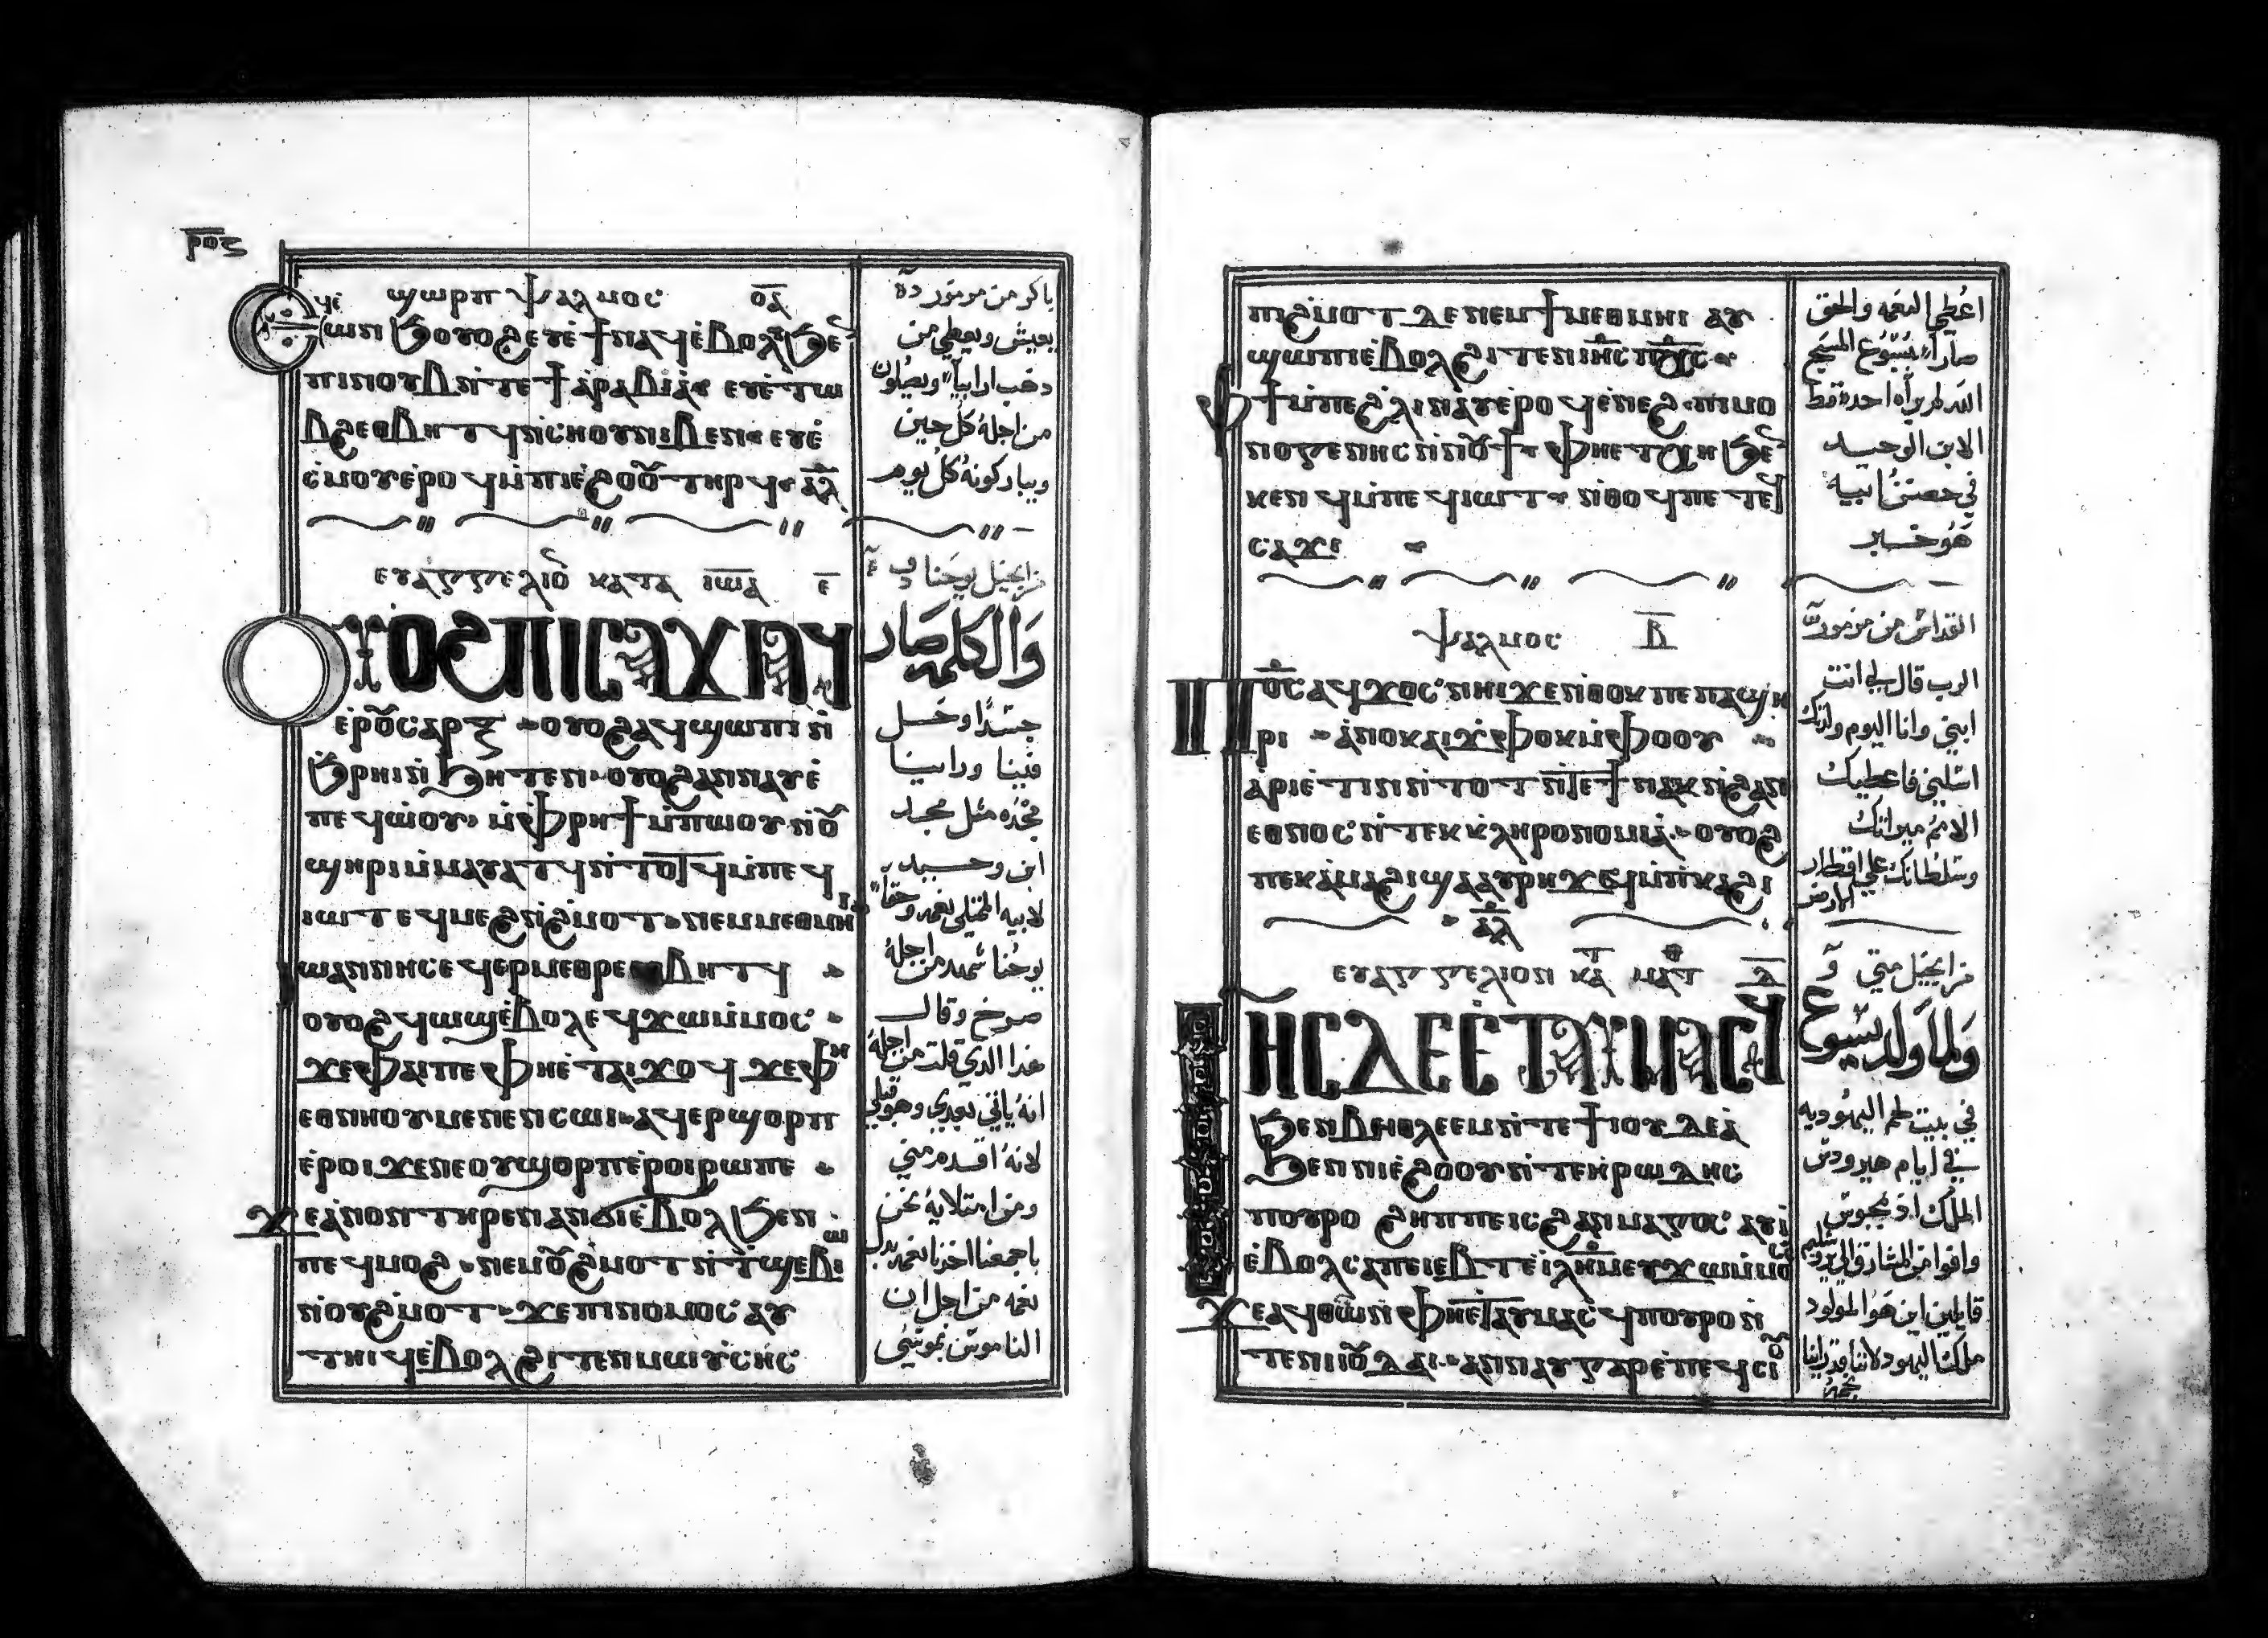 ϣⲱⲣⲡ ⲯⲁⲗⲙⲟⲥ ⲟ̅ⲁ̅
ⲉϥⲉ̀ⲱⲛϧ ⲟⲩⲟϩ ⲉⲩⲉ̀ϯⲛⲁϥ ⲉ̀ⲃⲟⲗϧⲉ
ⲡⲓⲛⲟⲩⲃ ⲛ̀ⲧⲉ ϯⲁ̀ⲣⲁⲃⲓⲁ̀ ⲉⲩⲉ̀ⲧⲱ
ⲃϩ ⲉⲑⲃⲏⲧϥ ⲛ̀ⲥⲏⲟⲩ ⲛⲓⲃⲉⲛ ⲉⲩⲉ̀
ⲥ̀ⲙⲟⲩ ⲉ̀ⲣⲟϥ ⲙ̀ⲡⲓⲉ̀ϩⲟⲟⲩ ⲧⲏⲣϥ ⲁ̅ⲗ̅
ⲉⲩⲁⲅⲅⲉⲗⲓⲟ ⲕⲁⲧⲁ ⲓⲱ̅ⲁ̅ ⲉ̅
ⲟⲩⲟϩ ⲡⲓⲥⲁϫⲓ ⲁϥ
ⲉⲣⲟⲩⲥⲁⲣⲝ ⲟⲩⲟϩ ⲁϥϣⲱⲡⲓ ⲛ̀
ϧⲣⲏⲓ ⲛ̀ϧⲏⲧⲉⲛ ⲟⲩⲟϩ ⲁⲛⲛⲁⲩ ⲉ̀
ⲡⲉϥⲱ̀ⲟⲩ ⲙ̀ⲫⲣⲏϯ ⲙ̀ⲡⲱⲟⲩ ⲛ̀ⲟⲩ
ϣⲏⲣⲓ ⲙ̀ⲙⲁⲩⲁⲧϥ ⲛ̀ⲧⲟⲧϥ ⲙ̀ⲡⲉϥ
ⲓⲱⲧ ⲉϥⲙⲉϩ ⲛ̀ϩⲙⲟⲧ ⲛⲉⲙ ⲙⲉⲑⲙⲏⲓ
ⲓⲱⲁⲛⲛⲏⲥ ⲉϥⲉⲣⲙⲉⲑⲣⲉ ⲉⲑⲃⲏⲧϥ
ⲟⲩⲟϩ ϥⲱϣ ⲉ̀ⲃⲟⲗ ⲉϥϫⲱ ⲙ̀ⲙⲟⲥ
ϫⲉ ⲫⲁⲓ ⲡⲉ ⲫⲏⲉ̀ⲧⲁⲓϫⲟϥ ϫⲉ ⲫⲏ
ⲉⲑⲛⲏⲟⲩ ⲙⲉⲛⲉⲛⲥⲱⲓ ⲁϥⲉⲣϣⲟⲣⲡ
ⲉ̀ⲣⲟⲓ ϫⲉ ⲛⲉⲟⲩϣⲟⲣⲡ ⲉ̀ⲣⲟⲓ ⲣⲱ ⲡⲉ
ϫⲉ ⲁ̀ⲛⲟⲛ ⲧⲏⲣⲉⲛ ⲁⲛϭⲓ ⲉ̀ⲃⲟⲗϧⲉⲛ
ⲡⲉϥⲙⲟϩ ⲛⲉⲙ ⲟⲩϩⲙⲟⲧ ⲛ̀ⲧϣⲉⲃⲓⲱ
ⲛ̀ⲟⲩϩⲙⲟⲧ ϫⲉ ⲡⲓⲛⲟⲙⲟⲥ ⲁⲩ
ⲧⲏⲓϥ ⲉ̀ⲃⲟⲗϩⲓⲧⲉⲛ ⲙⲱⲩⲥⲏⲥ
باكر من مزمور
يعيش ويعطي من
دهب ارابيا ويصلون
من اجله كل حين
ويباركونه كل يوم
من انجيل يوحنا
والكلمه صار
جسدا وحل
فينا وراينا
مجده مثل مجد
ابن وحيد
لابيه الممتلي نعمه وحقا
يوحنا شهد من اجله
صرخ وقال
هذا الذي قلت من اجله
انه ياتي بعدي وهو قبلي
لانه اقدم مني
ومن امتلايه نحن
باجمعنا اخذنا نعمه بدل
نعمه من اجل ان
الناموس بموسي
ⲡⲓϩⲙⲟⲧ ⲇⲉ ⲛⲉⲙ ϯⲙⲉⲑⲙⲏⲓ ⲁⲩ
ϣⲱⲡⲓ ⲉ̀ⲃⲟⲗϩⲓⲧⲉⲛ ⲓⲏ̅ⲥ̅ ⲡⲭ̅ⲥ̅
ⲫϯ ⲙ̀ⲡⲉ ϩⲗⲓ ⲛⲁⲩ ⲉ̀ⲣⲟϥ ⲉ̀ⲛⲉϩ ⲡⲓⲙⲟ
ⲛⲟⲅⲉⲛⲏⲥ ⲛ̀ⲛⲟⲩϯ ⲫⲏⲉⲧⲭⲏ ϧⲉ
ⲕⲉⲛϥ ⲙ̀ⲡⲉϥⲓⲱⲧ ⲛ̀ⲑⲟϥ ⲡⲉⲧⲉϥ
ⲥⲁϫⲓ
ⲯⲁⲗⲙⲟⲥ ⲃ̅
ⲡⲟ̅ⲥ̅ ⲁϥϫⲟⲥ ⲛⲏⲓ ϫⲉ ⲛ̀ⲑⲟⲕ ⲡⲉ ⲡⲁϣⲏ
ⲣⲓ ⲁ̀ⲛⲟⲕ ⲁⲓϫ̀ⲫⲟⲕ ⲙ̀ⲫⲟⲟⲩ
ⲁ̀ⲣⲓⲉ̀ⲧⲓⲛ ⲛ̀ⲧⲟⲧ ⲛ̀ⲧⲉϯ ⲛⲁⲕ ⲛ̀ϩⲁⲛ
ⲉⲑⲛⲟⲥ ⲛ̀ⲧⲉⲕⲕ̀ⲗⲏⲣⲟⲛⲟⲙⲓⲁ̀ ⲟⲩⲟϩ
ⲡⲉⲕⲁ̀ⲙⲁϩⲓ ϣⲁ ⲁⲩⲣⲏϫϥ ⲙ̀ⲡⲕⲁϩⲓ
ⲁ̅ⲗ̅
ⲉⲩⲁⲅⲅⲉⲗⲓⲟⲛ ⲕⲁⲧ ⲙⲁⲧ ⲇ̅
ⲓⲏⲥ ⲇⲉ ⲉ̀ⲧⲁⲩⲙⲁⲥϥ
ϧⲉⲛ ⲃⲏⲑⲗⲉⲉⲙ ⲛ̀ⲧⲉ ϯⲓⲟⲩⲇⲉⲁ̀
ϧⲉⲛ ⲛⲓⲉ̀ϩⲟⲟⲩ ⲛ̀ⲧⲉ ⲏ̀ⲣⲱⲇⲏⲥ
ⲡⲟⲩⲣⲟ ϩⲏⲡⲡⲉ ⲓⲥ ϩⲁⲛⲙⲁⲅⲟⲥ ⲁⲩⲓ̀
ⲉ̀ⲃⲟⲗ ⲥⲁⲡⲉⲓⲉⲃⲧ ⲉ̀ⲓⲗ̅ⲏ̅ⲙ̅ ⲉⲩϫⲱ ⲙ̀ⲙⲟⲥ
ϫⲉ ⲁϥⲑⲱⲛ ⲫⲏⲉⲧⲁⲩⲙⲁⲥϥ ⲡⲟⲩⲣⲟ ⲛ̀
ⲧⲉ ⲛⲓⲓⲟⲩⲇⲁⲓ ⲁⲛⲛⲁⲩ ⲅⲁⲣ ⲉ̀ⲡⲉϥⲥⲓⲟⲩ
اعطي النعمه والحق
صارا بيسوع المسيح
الله لم يراه احد قط
الابن الوحيد
في حضن ابيه
هو خبر
القداس من مزمور
الرب قال لي انت
ابني وانا اليوم ولدتك
اسلني فاعطيك
الامم ميراثك
وسلطانك علي اقطار
الارض
من انجيل متي
ولما ولد يسوع
في بيت لحم اليهوديه
في ايام هيرودس
الملك اذ مجوس
وافوا من المشارق الي يروشليم
قايلين اين هو المولود
ملك اليهود لاننا قد راينا
نجمه